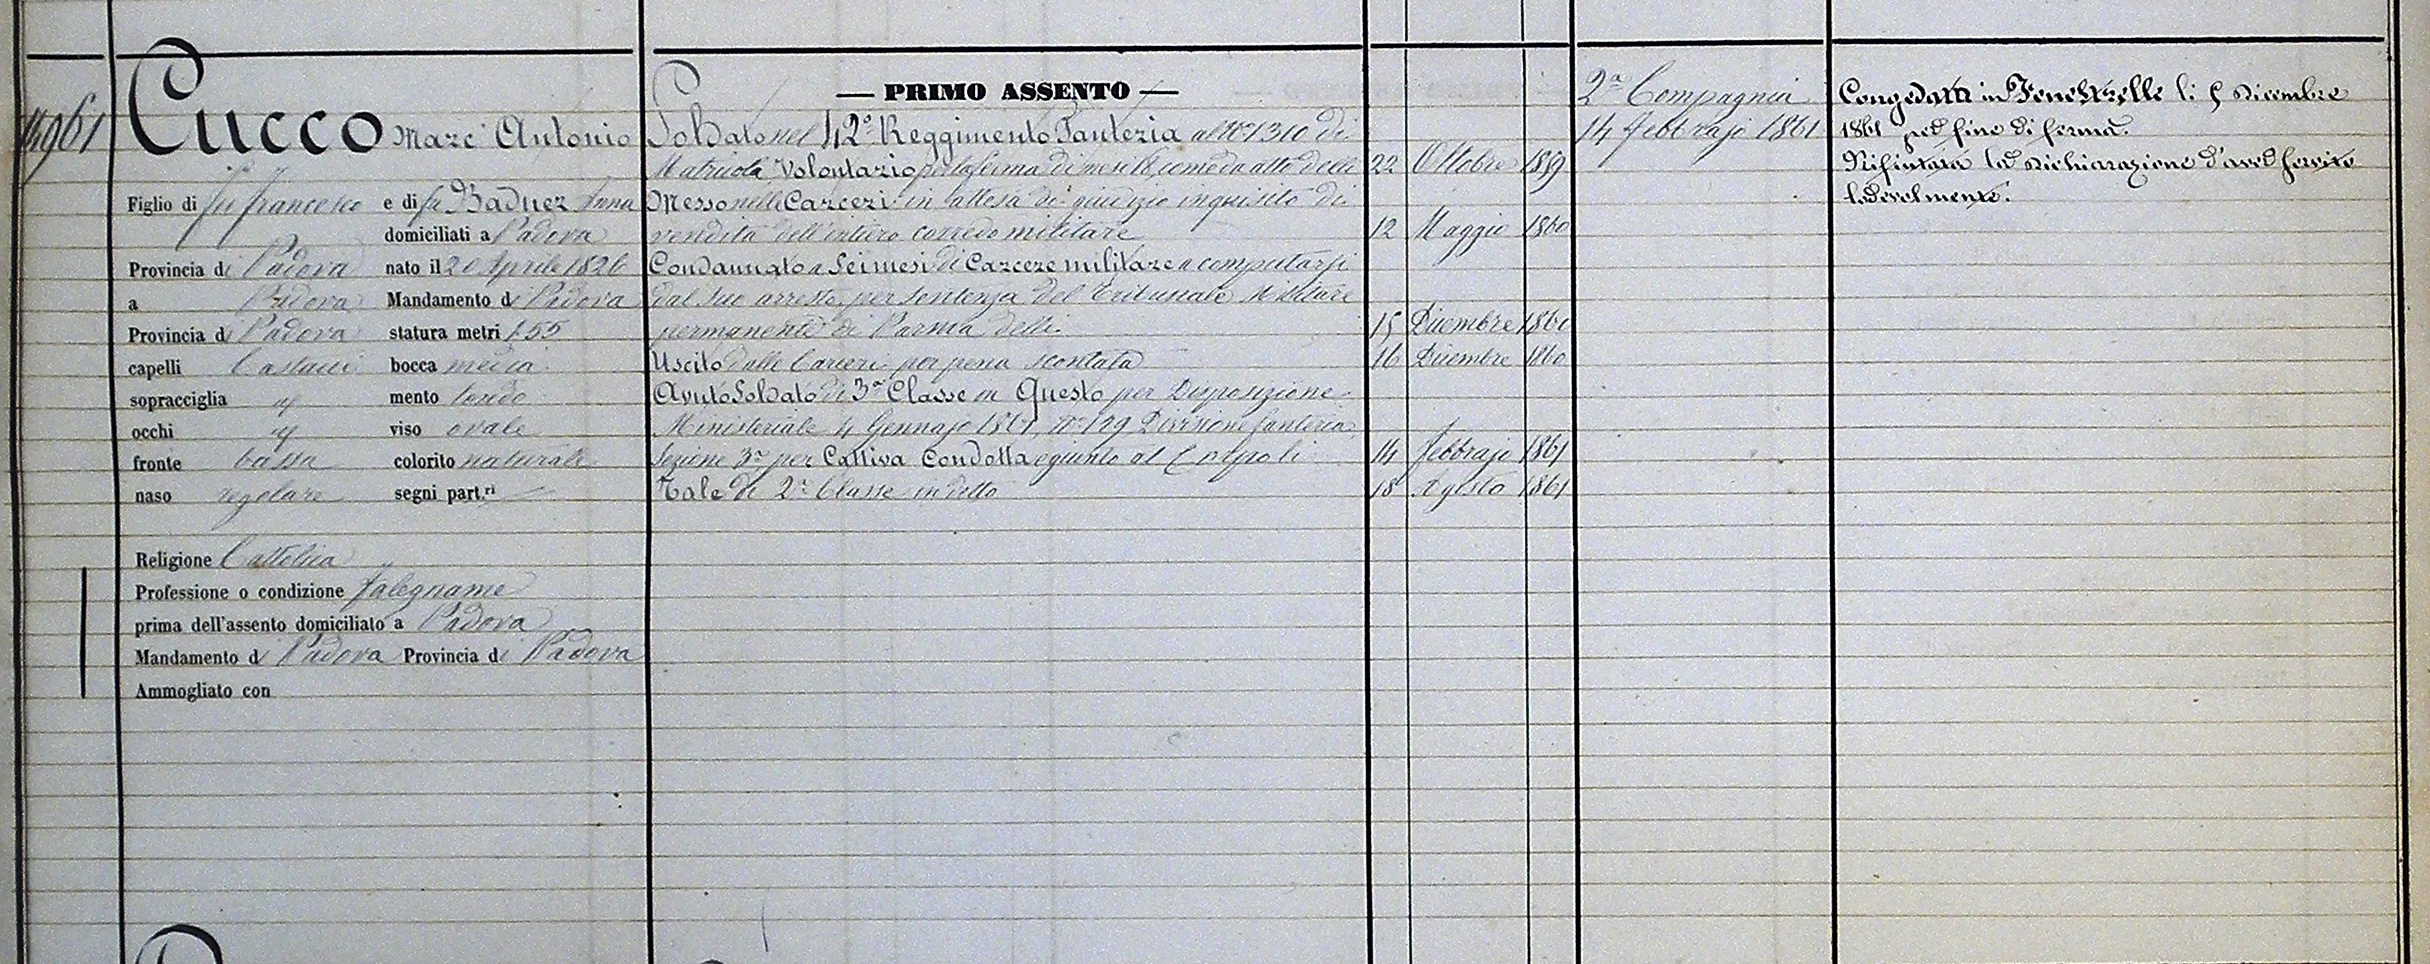 14961
Cucco Marc' Antonio
Figlio di fu Francesco e di fu Baduez Anna
domiciliati a Padova
Provincia di Padova nato il 20 Aprile 1826
a Padova Mandamento di Padova
Provincia di Padova statura metri 1.55
capelli Castani bocca media
sopracciglia id mento tondo
occhi id viso ovale
fronte bassa colorito naturale
naso regolare segni part.ri —
Religione Cattolica
Professione o condizione falegname
prima dell'assento domiciliato a Padova
Mandamento di Padova Provincia di Padova
Ammogliato con
— PRIMO ASSENTO —
Soldato nel 42° Reggimento Fanteria al N° 1310 di
Matricola Volontario per la ferma di mesi 18, come da atto delli 22 Ottobre 1859
Messo nelle Carceri in attesa di giudizio inquisito di
vendita dell'intero corredo militare 12 Maggio 1860
Condannato a Sei mesi di Carcere militare a computarsi
dal suo arresto, per sentenza del Tribunale Militare
permanente di Parma delli 15 Dicembre 1860
Uscito dalle Carceri per pena scontata 16 Dicembre 1860
Avuto Soldato di 3a Classe in Questo per Disposizione
Ministeriale 4 Gennajo 1861, N° 129 Divisione fanteria,
Sezione 3a per Cattiva Condotta e giunto al Corpo li 14 febbrajo 1861
Tale di 2a Classe in detto 18 Agosto 1861
2a Compagnia
14 febbrajo 1861
Congedato in Fenestrelle li 5 Dicembre
1861 per fine di ferma.
Rifiutata la dichiarazione d'aver servito
lodevolmente.